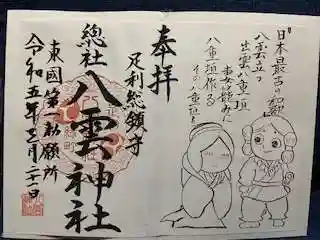 日本最古の和歌
八雲立つ
出雲八重垣
妻籠みに
八重垣作る
その八重垣を
奉拝
足利総鎮守
總社 八雲神社
東國第一祈願所
令和五年三月二十一日